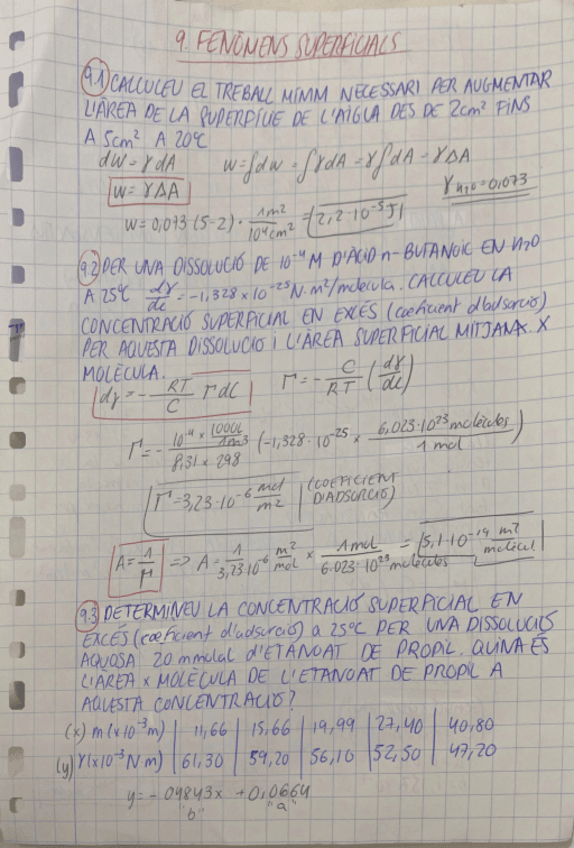 9. FENÒMENS SUPERFICIALS
9.1 CALCULEU EL TREBALL MÍNIM NECESSARI PER AUGMENTAR
L'ÀREA DE LA SUPERFÍCIE DE L'AIGUA DES DE 2cm² FINS
A 5cm² A 20ºC
dW = γ dA    W = ∫dW = ∫γdA = γ∫dA = γΔA
W = γΔA    γ H2O = 0,073
W = 0,073 (5-2) · 1m² / 10⁴cm² = 2,2·10⁻⁵ J
9.2 PER UNA DISSOLUCIÓ DE 10⁻⁴ M D'ÀCID n-BUTANOIC EN H2O
A 25ºC dγ/dc = -1,328 × 10⁻²⁵ N·m²/molècula. CALCULEU LA
CONCENTRACIÓ SUPERFICIAL EN EXCÉS (coeficient d'adsorció)
PER AQUESTA DISSOLUCIÓ I L'ÀREA SUPERFICIAL MITJANA X
MOLÈCULA.
dγ = - RT/C Γ dC    Γ = - C/RT (dγ/dc)
Γ = - 10⁻⁴ × 1000L/1m³ / 8,31 × 298 (-1,328·10⁻²⁵ × 6,023·10²³ molècules / 1 mol)
Γ = 3,23·10⁻⁶ mol/m² (COEFICIENT
D'ADSORCIÓ)
A = 1/Γ => A = 1/3,23·10⁻⁶ m²/mol × 1mol / 6.023·10²³ molècules = 5,1·10⁻¹⁹ m²/molècul
9.3 DETERMINEU LA CONCENTRACIÓ SUPERFICIAL EN
EXCÉS (coeficient d'adsorció) a 25ºC PER UNA DISSOLUCIÓ
AQUOSA 20 mmolal D'ETANOAT DE PROPIL. QUINA ÉS
L'ÀREA × MOLÈCULA DE L'ETANOAT DE PROPIL A
AQUESTA CONCENTRACIÓ?
(x) m (x10⁻³m) | 11,66 | 15,66 | 19,99 | 27,40 | 40,80
(y) γ (x10⁻³ N m) | 61,30 | 59,20 | 56,10 | 52,50 | 47,20
y = -0,4843x + 0,0664
"b" "a"